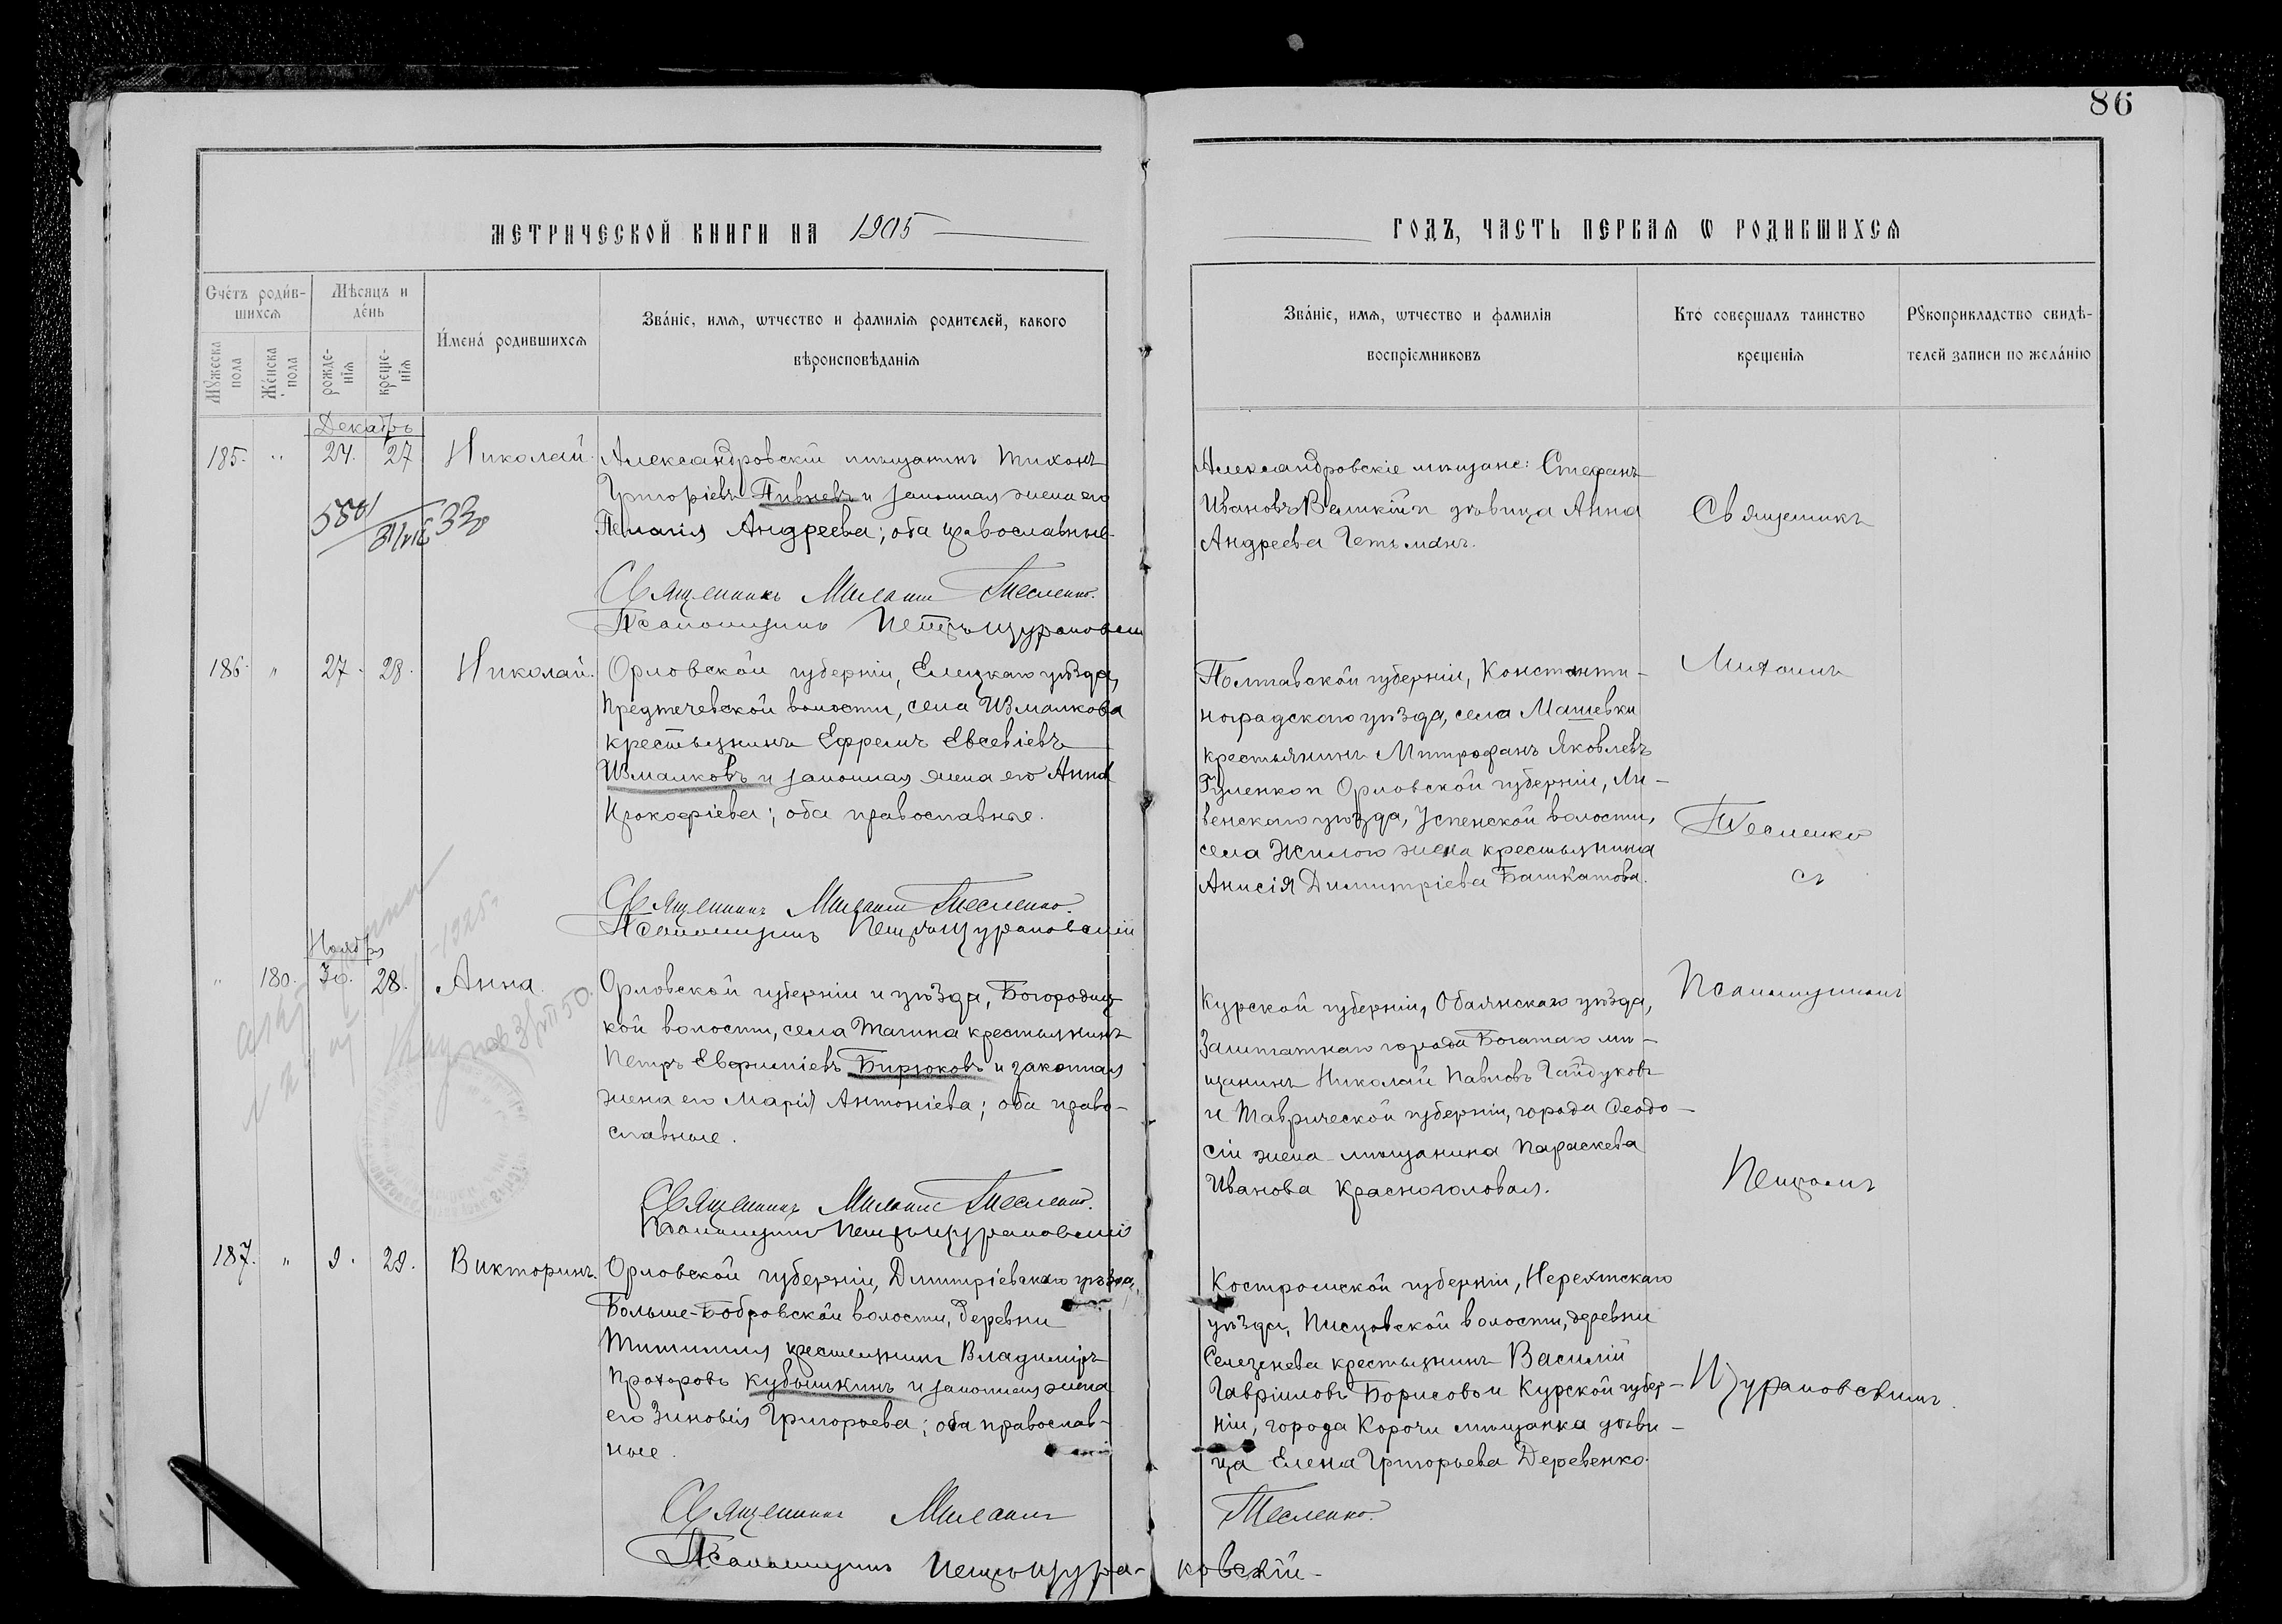 86
МЕТРИЧЕСКОЙ КНИГИ НА 1905
ГОДЪ, ЧАСТЬ ПЕРВАЯ Ѡ РОДИВШИХСЯ
Счетъ родив-
шихся
Мѣсяцъ и
день
Мꙋжеска
пола
Женска
пола
рожде-
нія
креще-
нія
Имена родившихся
Званіе, имя, ѡтчество и фамилія родителей, какого
вѣроисповѣданія
Званіе, имя, ѡтчество и фамилія
воспріемниковъ
Кто совершалъ таинство
крещенія
Рꙋкоприкладство свидѣ-
телей записи по желанію
Декабрь
185. " 24. 27 Николай. Александровскій мѣщанинъ Тихонъ
Григоріевъ Пивневъ и законная жена его
Пелагія Андреева; оба православные.
Священникъ Михаилъ Тесленко.
Псаломщикъ Петръ Цураковскій
Александровскіе мѣщане: Стефанъ
Ивановъ Великій и дѣвица Анна
Андреева Гетьманъ.
Священникъ
186. " 27. 28. Николай. Орловской губерніи, Елецкаго уѣзда,
Предтечевской волости, села Измалкова
крестьянинъ Ефремъ Евсевіевъ
Измалковъ и законная жена его Анна
Прокофіева; оба православные.
Священникъ Михаилъ Тесленко.
Псаломщикъ Петръ Цураковскій
Полтавской губерніи, Константи-
ноградскаго уѣзда, села Машевки
крестьянинъ Митрофанъ Яковлевъ
Орловской губерніи, Ли-
венскаго уѣзда, Успенской волости,
села Жилого жена крестьянина
Анисія Димитріева Башкатова.
Михаилъ
Тесленко
съ
Ноябрь
" 180. 30. 28. Анна. Орловской губерніи и уѣзда, Богородиц-
кой волости, села Тагина крестьянинъ
Петръ Евфиміевъ Бирюковъ и законная
жена его Марія Антоніева; оба право-
славные.
Священникъ Михаилъ Тесленко.
Псаломщикъ Петръ Цураковскій
Курской губерніи, Обаянскаго уѣзда,
Заштатнаго города Богатаго мѣ-
щанинъ Николай Павловъ Гайдуковъ
и Таврической губерніи, города Ѳеодо-
сіи жена мѣщанина Параскева
Иванова Красноголовая.
Псаломщикомъ
Петромъ
187. " 9. 29. Викторинъ. Орловской губерніи, Димитріевскаго уѣзда,
Больше-Бобровской волости, деревни
крестьянинъ Владиміръ
Прохоровъ Кубышкинъ и законная жена
его Зиновія Григорьева; оба православ-
ные.
Священникъ Михаилъ Тесленко.
Псаломщикъ Петръ Цура-ковскій-
Костромской губерніи, Нерехтскаго
уѣзда, Писцовской волости, деревни
Селезнева крестьянинъ Василій
Гавріиловъ Борисовъ и Курской губер-
ніи, города Корочи мѣщанка дѣви-
ца Елена Григорьева Деревенко.
Цураковскимъ.